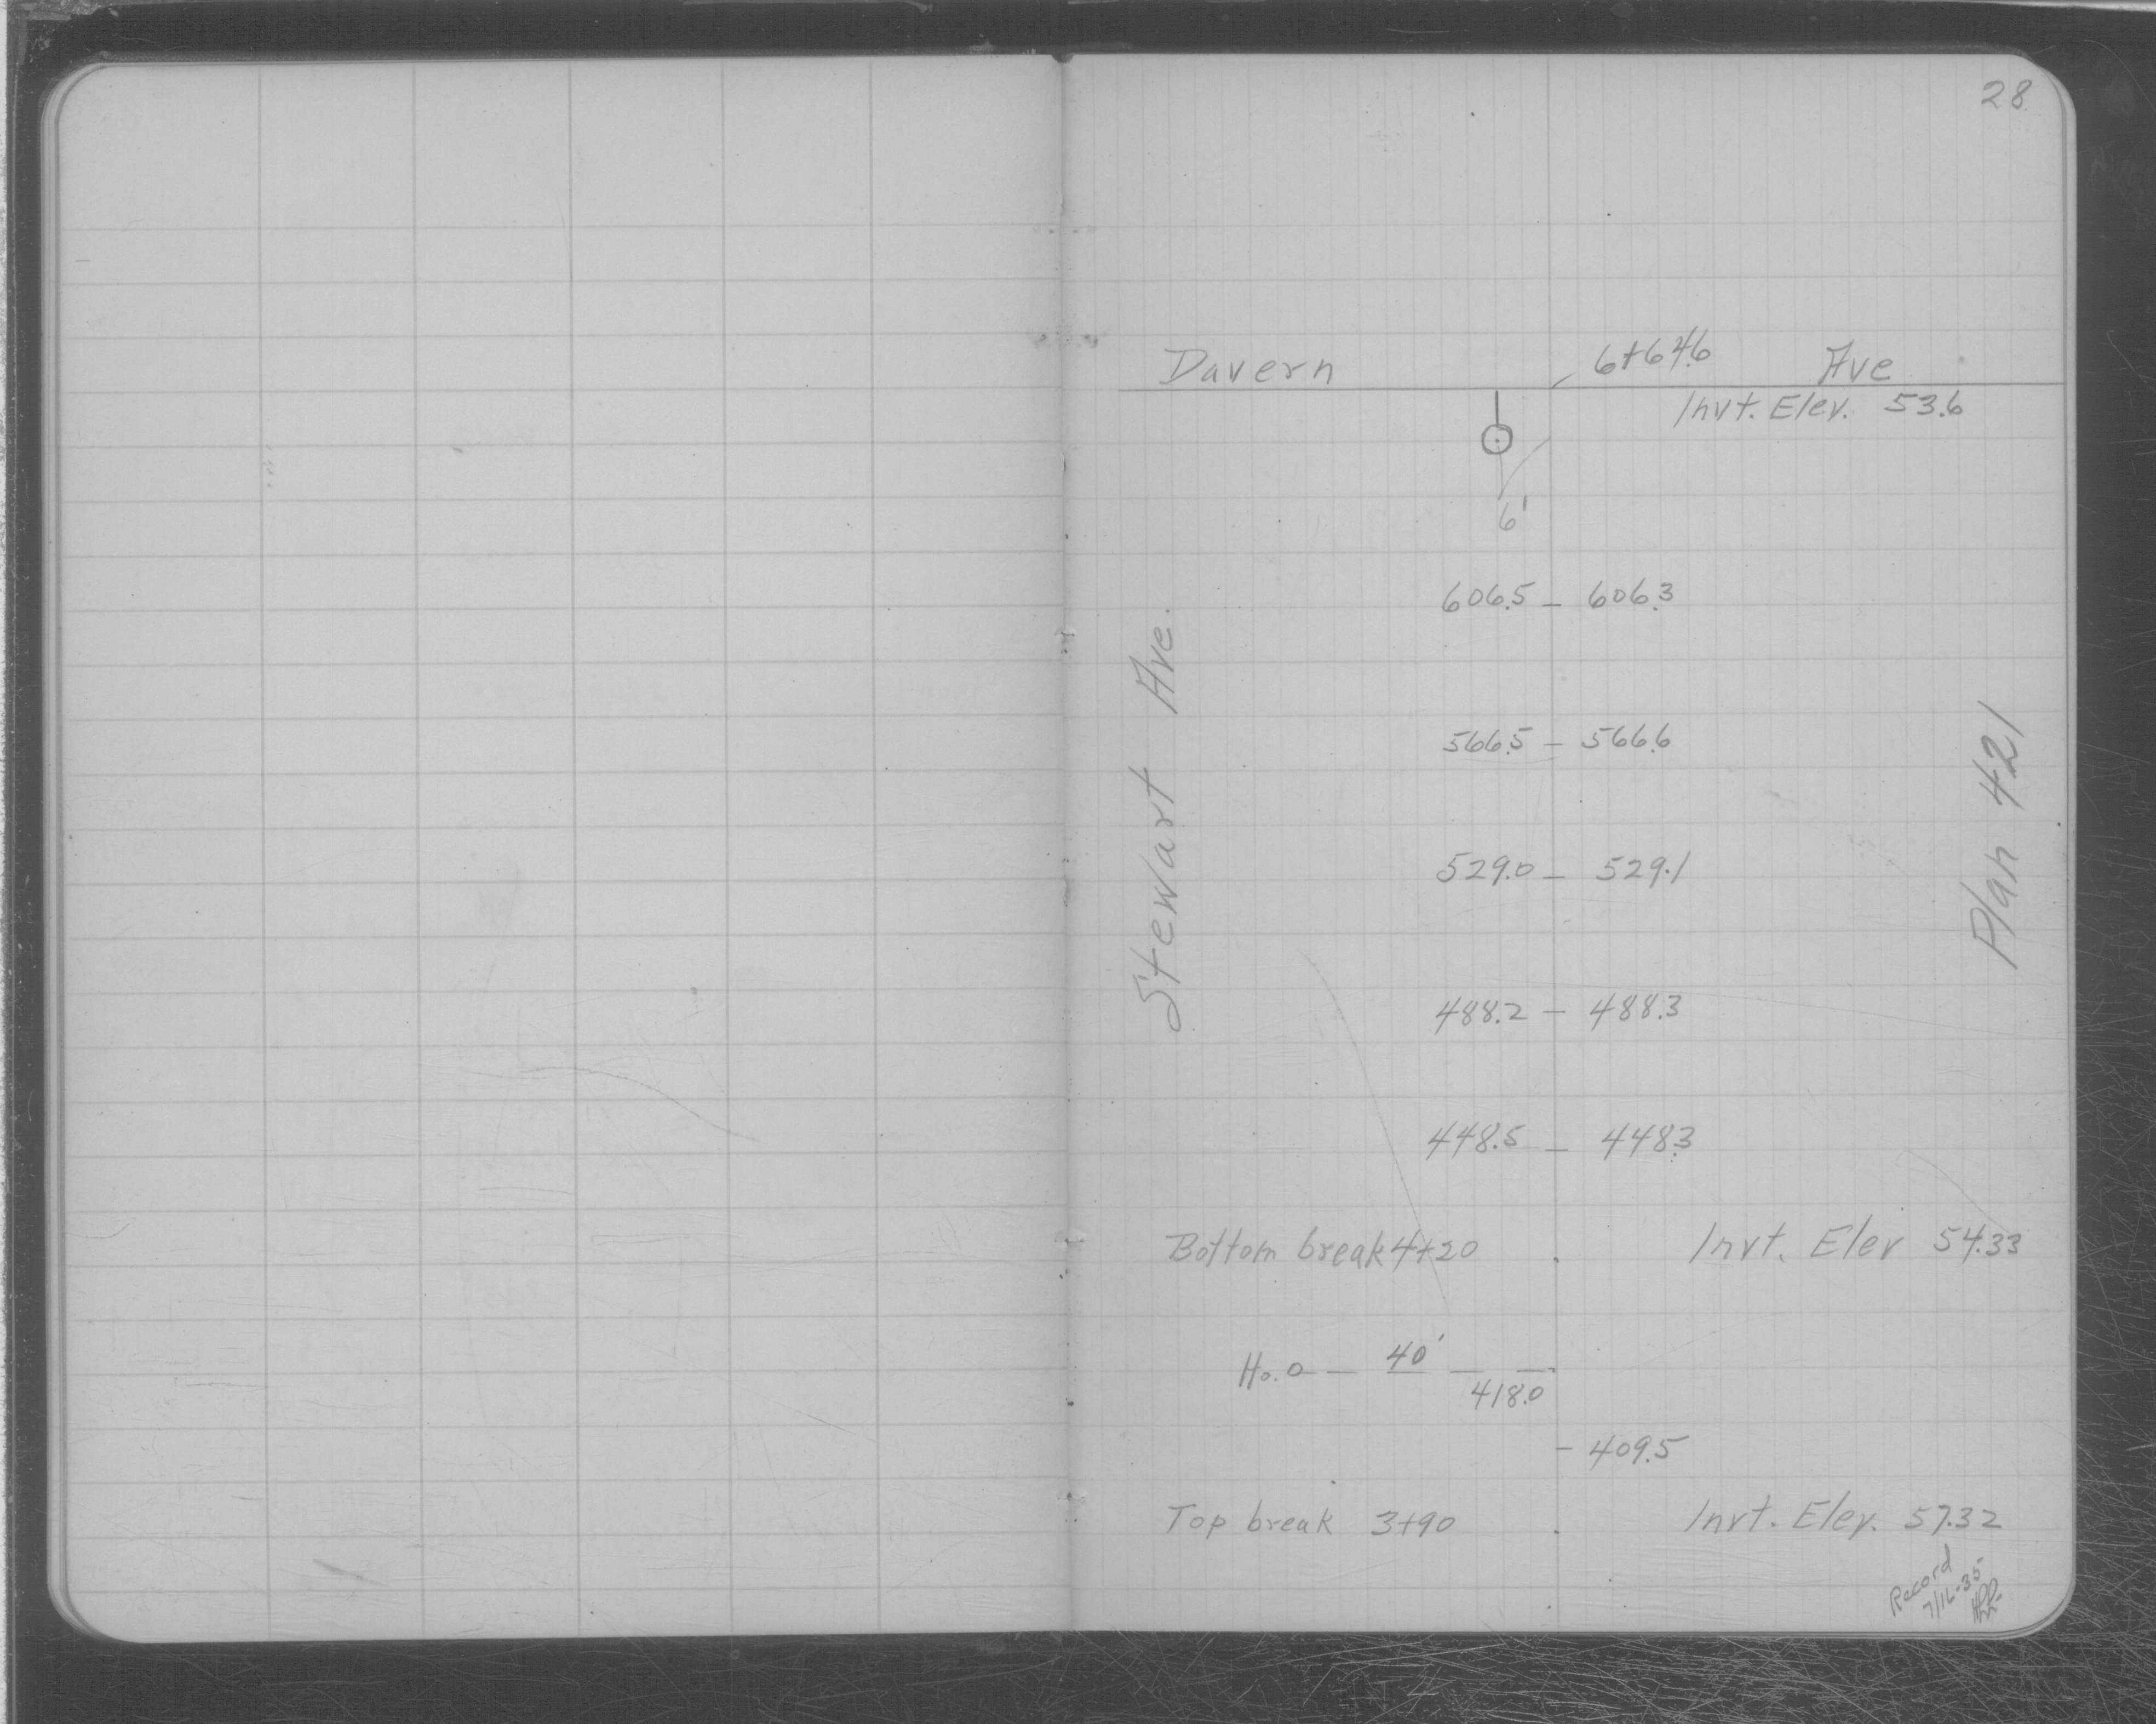 28
Davern 6+64.6 Ave
Invt. Elev. 53.6
6'
606.5 - 606.3
566.5 - 566.6
Stewart Ave.
Plan 421
529.0 - 529.1
488.2 - 488.3
448.5 - 448.3
Bottom break 4+20 Invt. Elev 54.33
Ho. 0 - 40' - -
418.0
- 409.5
Top break 3+90 Invt. Elev. 57.32
Record
7/16-35